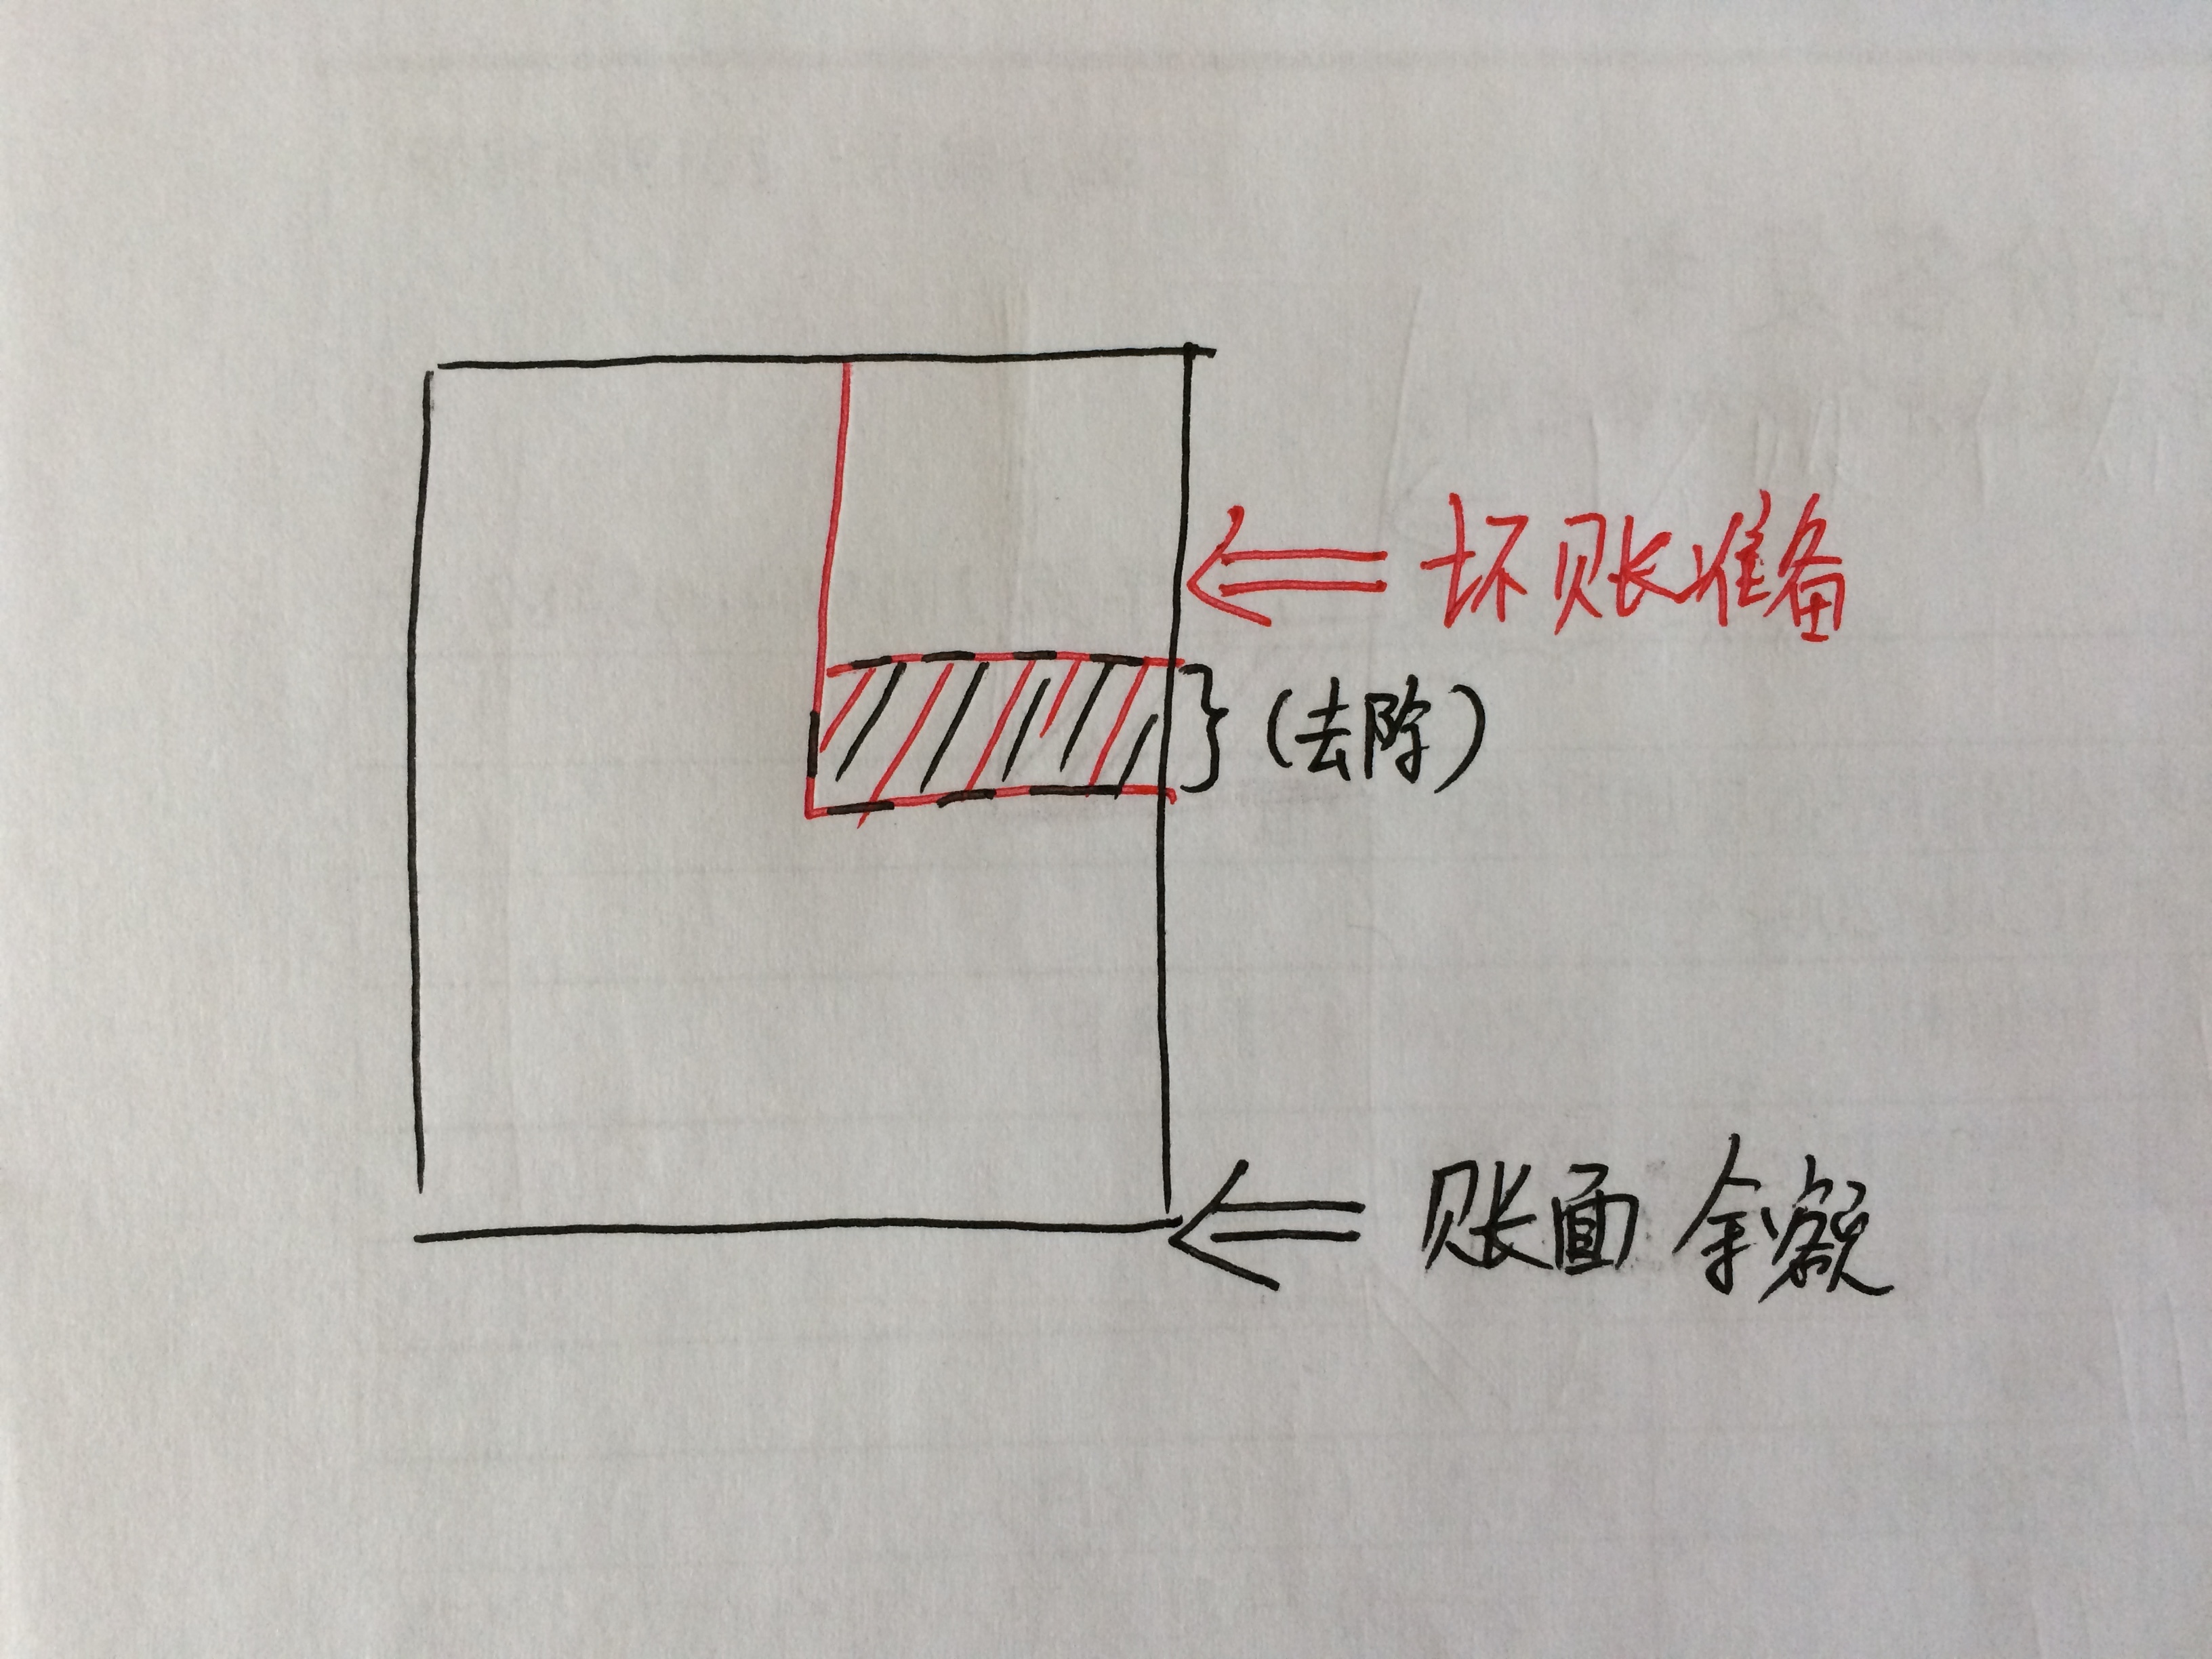 坏账准备
(去除)
账面余额